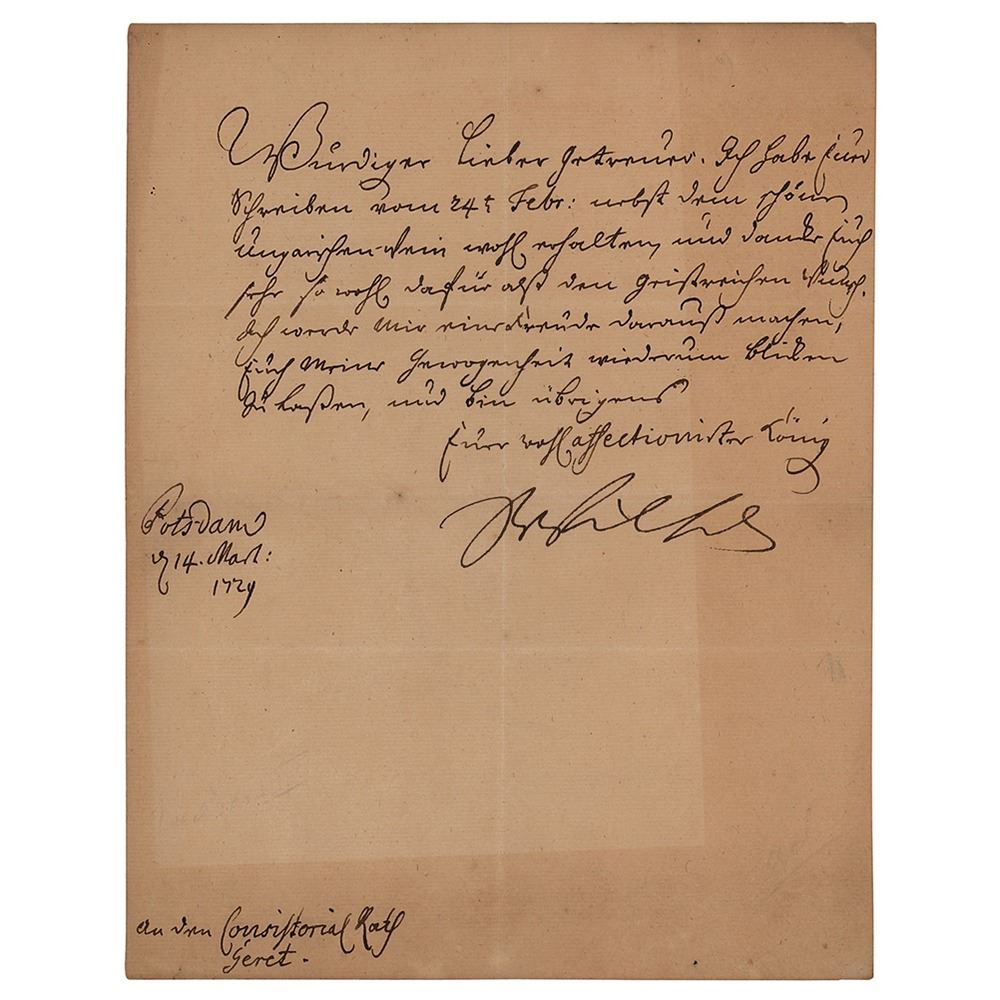 Würdiger Lieber Getreuer. Ich habe Euer
Schreiben vom 24t Febr: nebst dem schönen
Ungarischen Wein wohl erhalten, und dancke Euch
sehr so wohl dafür alß den Geistreichen Wunsch.
Ich werde Mir eine Freude darauß machen,
Euch Meine Gewogenheit wiederum blicken
zu laßen, und bin übrigens
Euer wohl affectionirter König
Potsdam
d 14. Mart:
1729
An den Consistorial Rath
Geret.